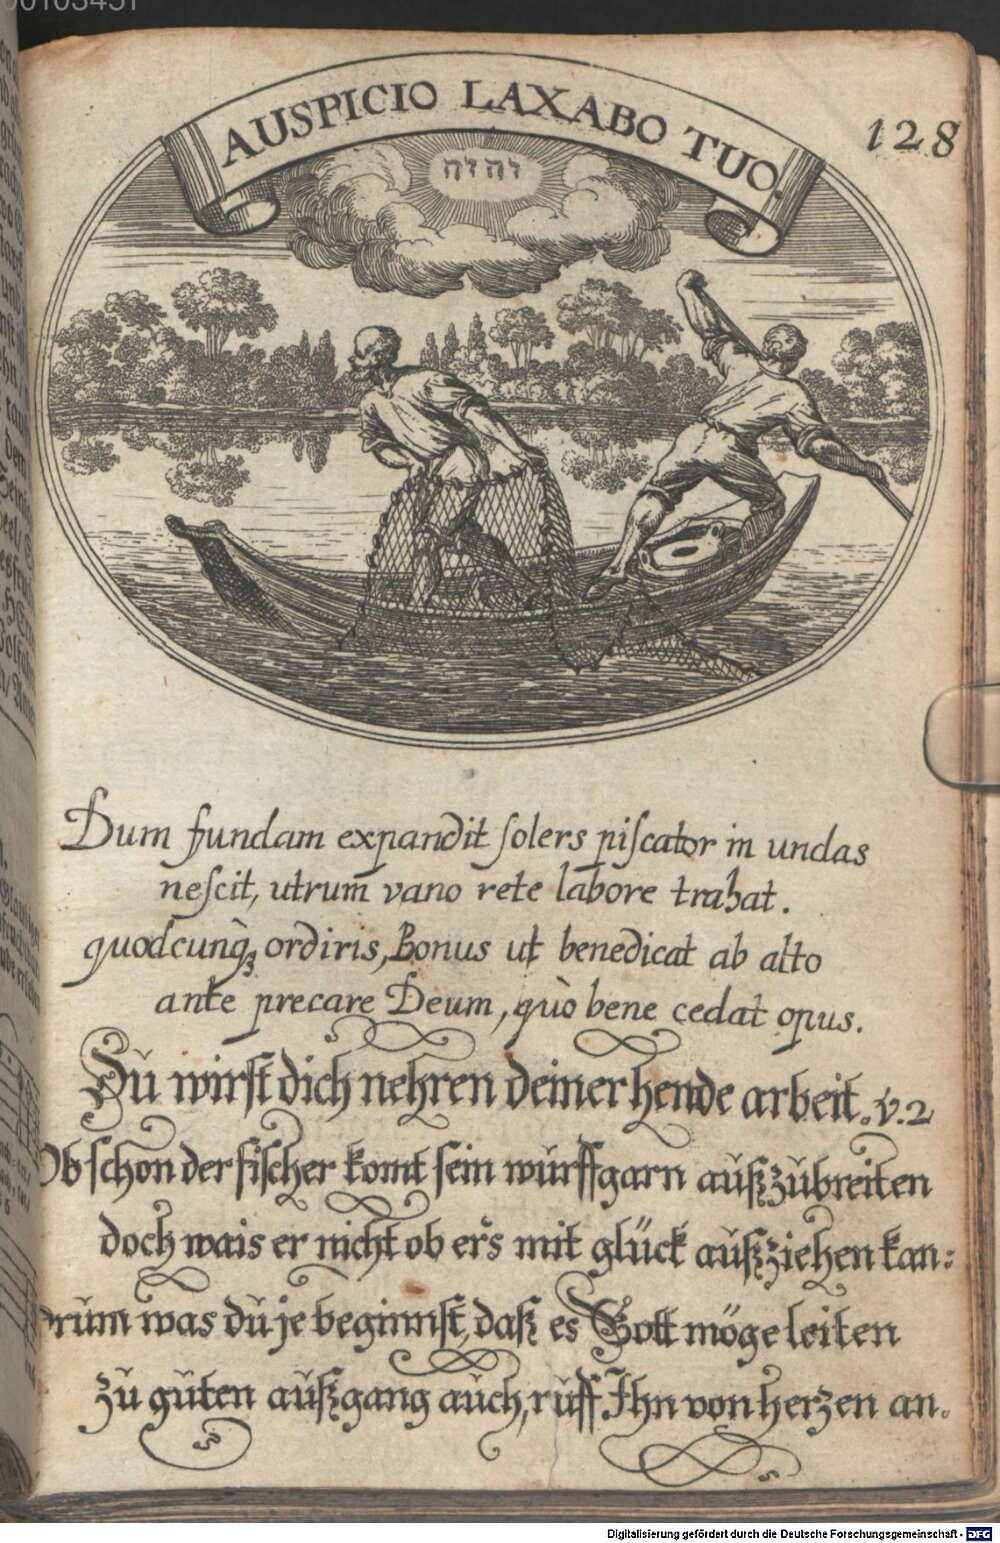 00103451
AUSPICIO LAXABO TUO.
128
יהוה
Dum fundam expandit ſolers piſcator in undas
neſcit, utrum vano rete labore trahat.
quodcunq̀ꝫ ordiris, Bonus ut benedicat ab alto
ante precare Deum, quò bene cedat opus.
Dŭ wirſt dich nehren deiner hende arbeit. v. 2
Ob ſchon der fiſcher komt ſein wŭrffgarn aŭßzŭbreiten
doch wais er nicht ob er's mit glück aŭßziehen kan:
drŭm was dŭ je beginnſt, daß es Gott möge leiten
zŭ gŭten aŭßgang aŭch, rŭff Ihn von herzen an.
Digitalisierung gefördert durch die Deutsche Forschungsgemeinschaft - DFG